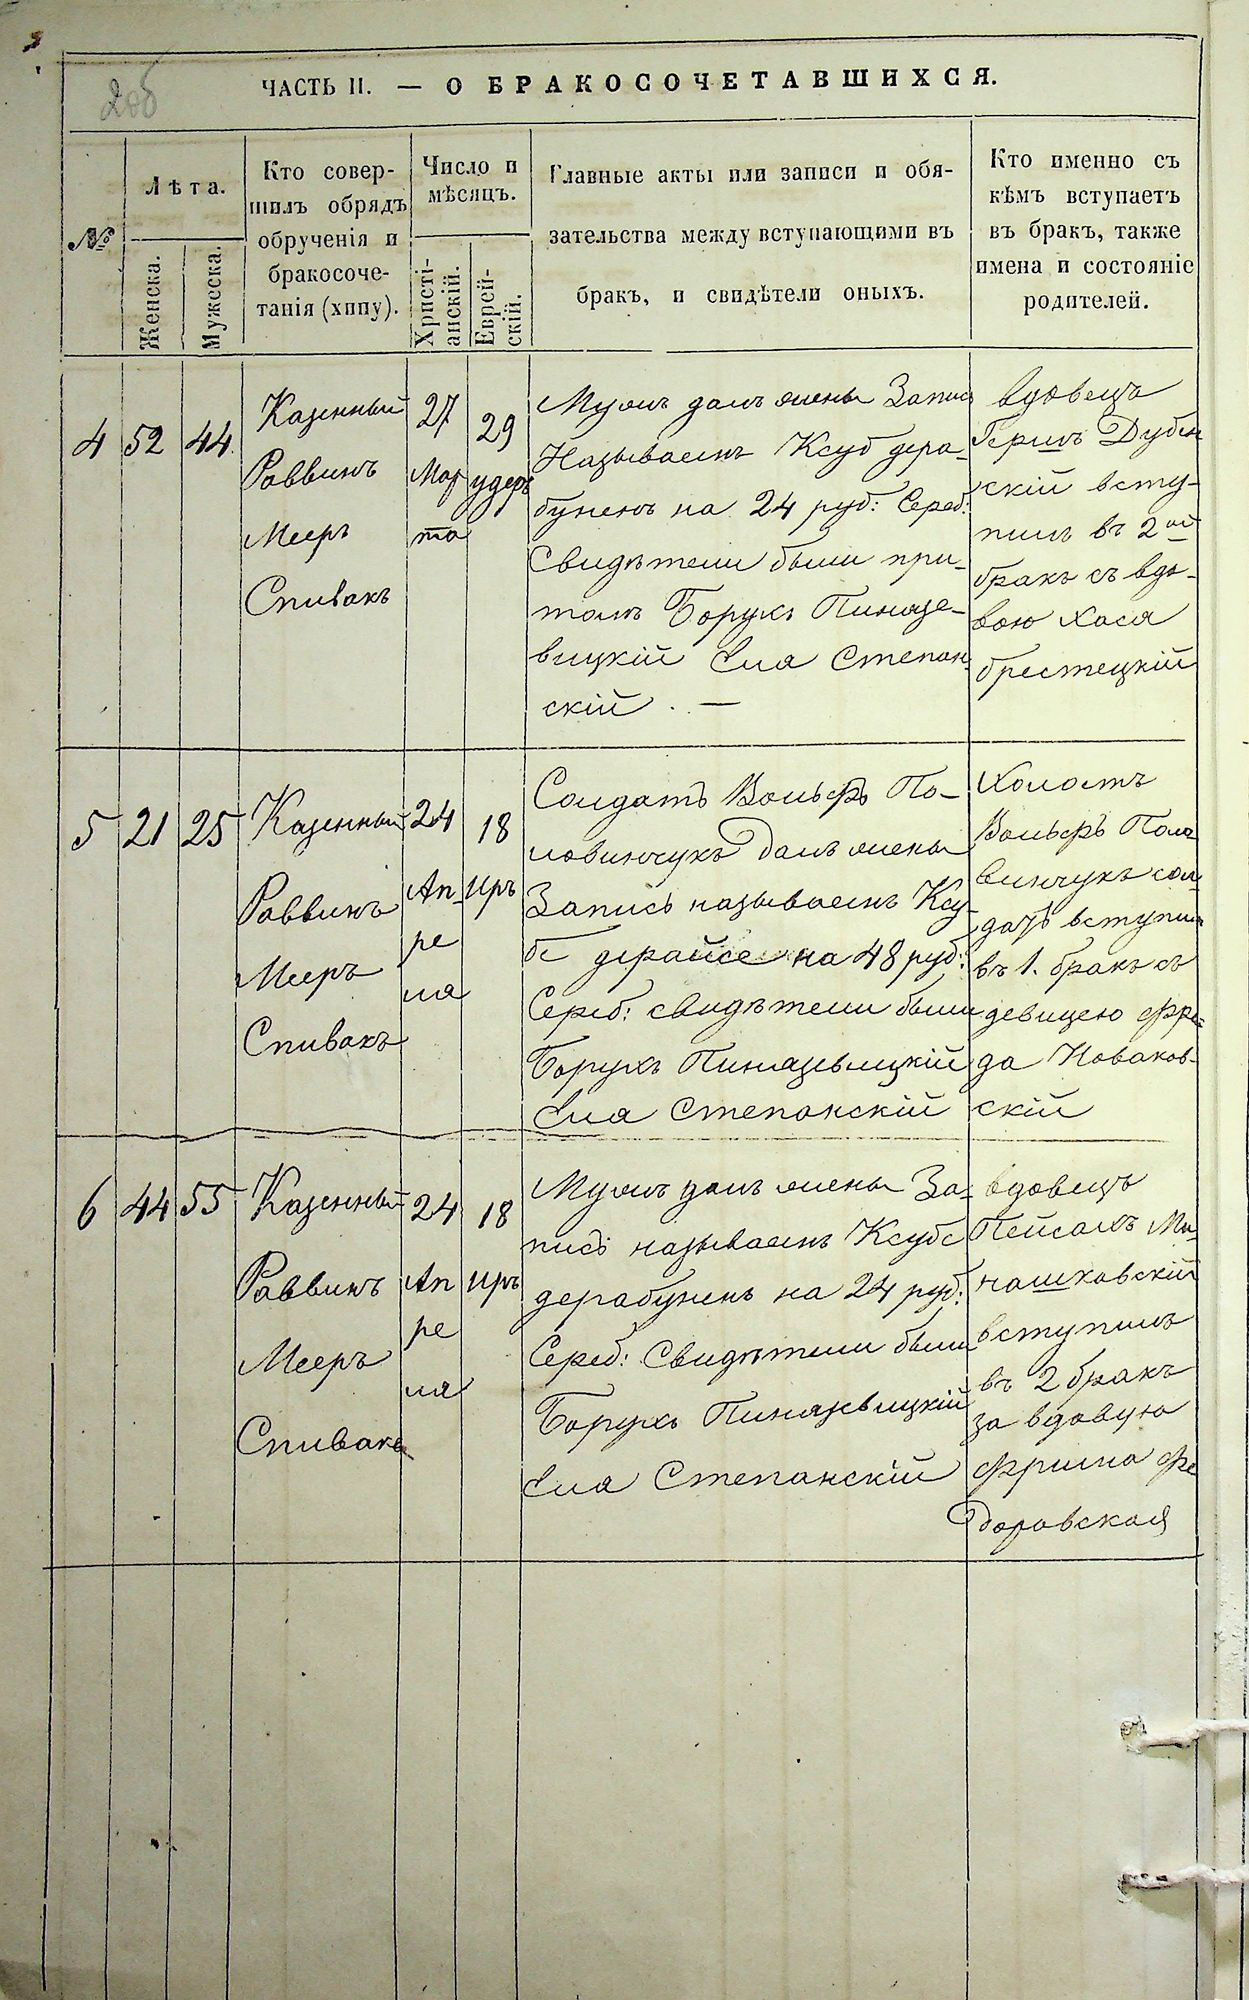 2об
ЧАСТЬ II. — О БРАКОСОЧЕТАВШИХСЯ.
№
Лѣта.
Женска.
Мужеска.
Кто совер-
шилъ обрядъ
обрученія и
бракосоче-
танія (хипу).
Число и
мѣсяцъ.
Христі-
анскій.
Еврей-
скій.
Главные акты или записи и обя-
зательства между вступающими въ
бракъ, и свидѣтели оныхъ.
Кто именно съ
кѣмъ вступаетъ
въ бракъ, также
имена и состояніе
родителей.
4
52
44
Казенный
Раввинъ
Мееръ
Спивакъ
27
Мар
та
29
удеръ
Мужъ далъ жены Запись
Называемъ Ксуб дера-
бунемъ на 24 руб: Сереб:
Свидѣтели были при-
томъ Борухъ Пинязе-
вицкій Еля Степан-
скій. —
вдовецъ
Гершъ Дубен
скій всту-
пилъ въ 2ой
бракъ съ вдо-
вою Хася
брестецкій
5
21
25
Казенный
Раввинъ
Мееръ
Спивакъ
24
Ап-
ре
ля
18
Иръ
Солдатъ Вольфъ По-
ловинчукъ Далъ жены
Запись называемъ Ксу-
бе дерайсе на 48 руб:
Сереб: свидѣтели были
Борухъ Пинязевицкій
Еля Степанскій
Холостъ
Вольфъ Поло
винчукъ сол-
датъ вступилъ
въ 1. бракъ съ
девицею Фрей-
да Новаков-
скій
6
44
55
Казенный
Раввинъ
Мееръ
Спивакъ
24
Ап
ре
ля
18
Иръ
Мужъ далъ жены За-
пись называемъ Ксубе
дерабунень на 24 руб:
Сереб: Свидѣтели были
Борухъ Пинязевицкій
Еля Степанскій
вдовецъ
Пейсахъ Ми-
нашковскій
вступилъ
въ 2 бракъ
за вдовую
Фрима Фе
доровская